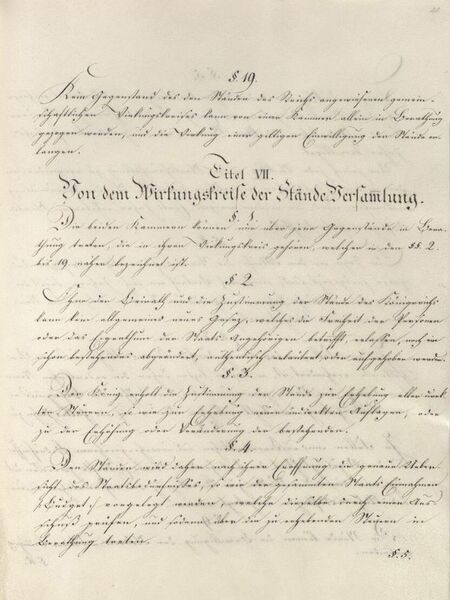 21
§ 19.
Kein Gegenstand des den Ständen des Reichs angewiesenen gemein-
schaftlichen Wirkungskreises kann von einer Kammer allein in Berathung
gezogen werden, und die Wirkung einer gültigen Einwilligung der Stände er-
langen.
Titel VII.
Von dem Wirkungskreise der Stände-Versamlung.
§. 1.
Die beiden Kammern können nur über jene Gegenstände in Bera-
thung treten, die in ihren Wirkungskreis gehören, welcher in den §§. 2.
bis 19. näher bezeichnet ist.
§ 2.
Ohne den Beirath und die Zustimmung der Stände des Königreichs
kann kein allgemeines neues Gesetz, welches die Freiheit der Personen
oder das Eigenthum der Staats-Angehörigen betrifft, erlassen, noch ein
schon bestehendes abgeändert, authentisch erläutert oder aufgehoben werden.
§. 3.
Der König erholt die Zustimmung der Stände zur Erhebung aller direk-
ten Steuern, so wie zur Erhebung neuer indirekten Auflagen, oder
zu der Erhöhung oder Veränderung der bestehenden.
§. 4.
Den Ständen wird daher nach ihrer Eröffnung die genaue Ueber-
sicht des Staatsbedürfnisses, so wie der gesammten Staats-Einnahmen
/:Budget:/ vorgelegt werden, welche dieselbe durch einen Aus-
schuß prüfen, und sodann über die zu erhebenden Steuern in
Berathung treten.
§. 5.